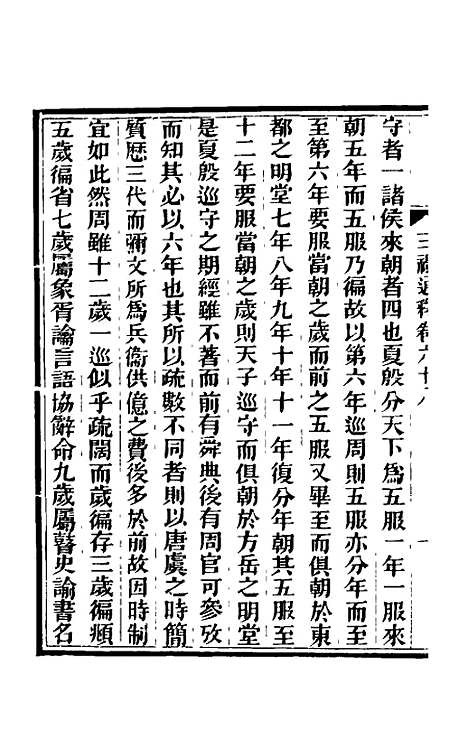 三禮通釋卷六十八
守者一諸侯來朝者四也夏殷分天下爲五服一年一服來
朝五年而五服乃徧故以第六年巡周則五服亦分年而朝
至第六年要服當朝之歲而前之五服又畢至而俱朝於東
都之明堂七年八年九年十年十一年復分年朝其五服至
十二年要服當朝之歲則天子巡守而俱朝於方岳之明堂
是夏殷巡守之期經雖不著而前有舜典後有周官可參攷
而知其必以六年也其所以疏數不同者則以唐虞之時簡
質歷三代而彌文所爲兵衞供億之費後多於前故因時制
宜如此然周雖十二歲一巡似乎疏闊而歲徧存三歲徧頫
五歲徧省七歲屬象胥諭言語協辭命九歲屬瞽史諭書名